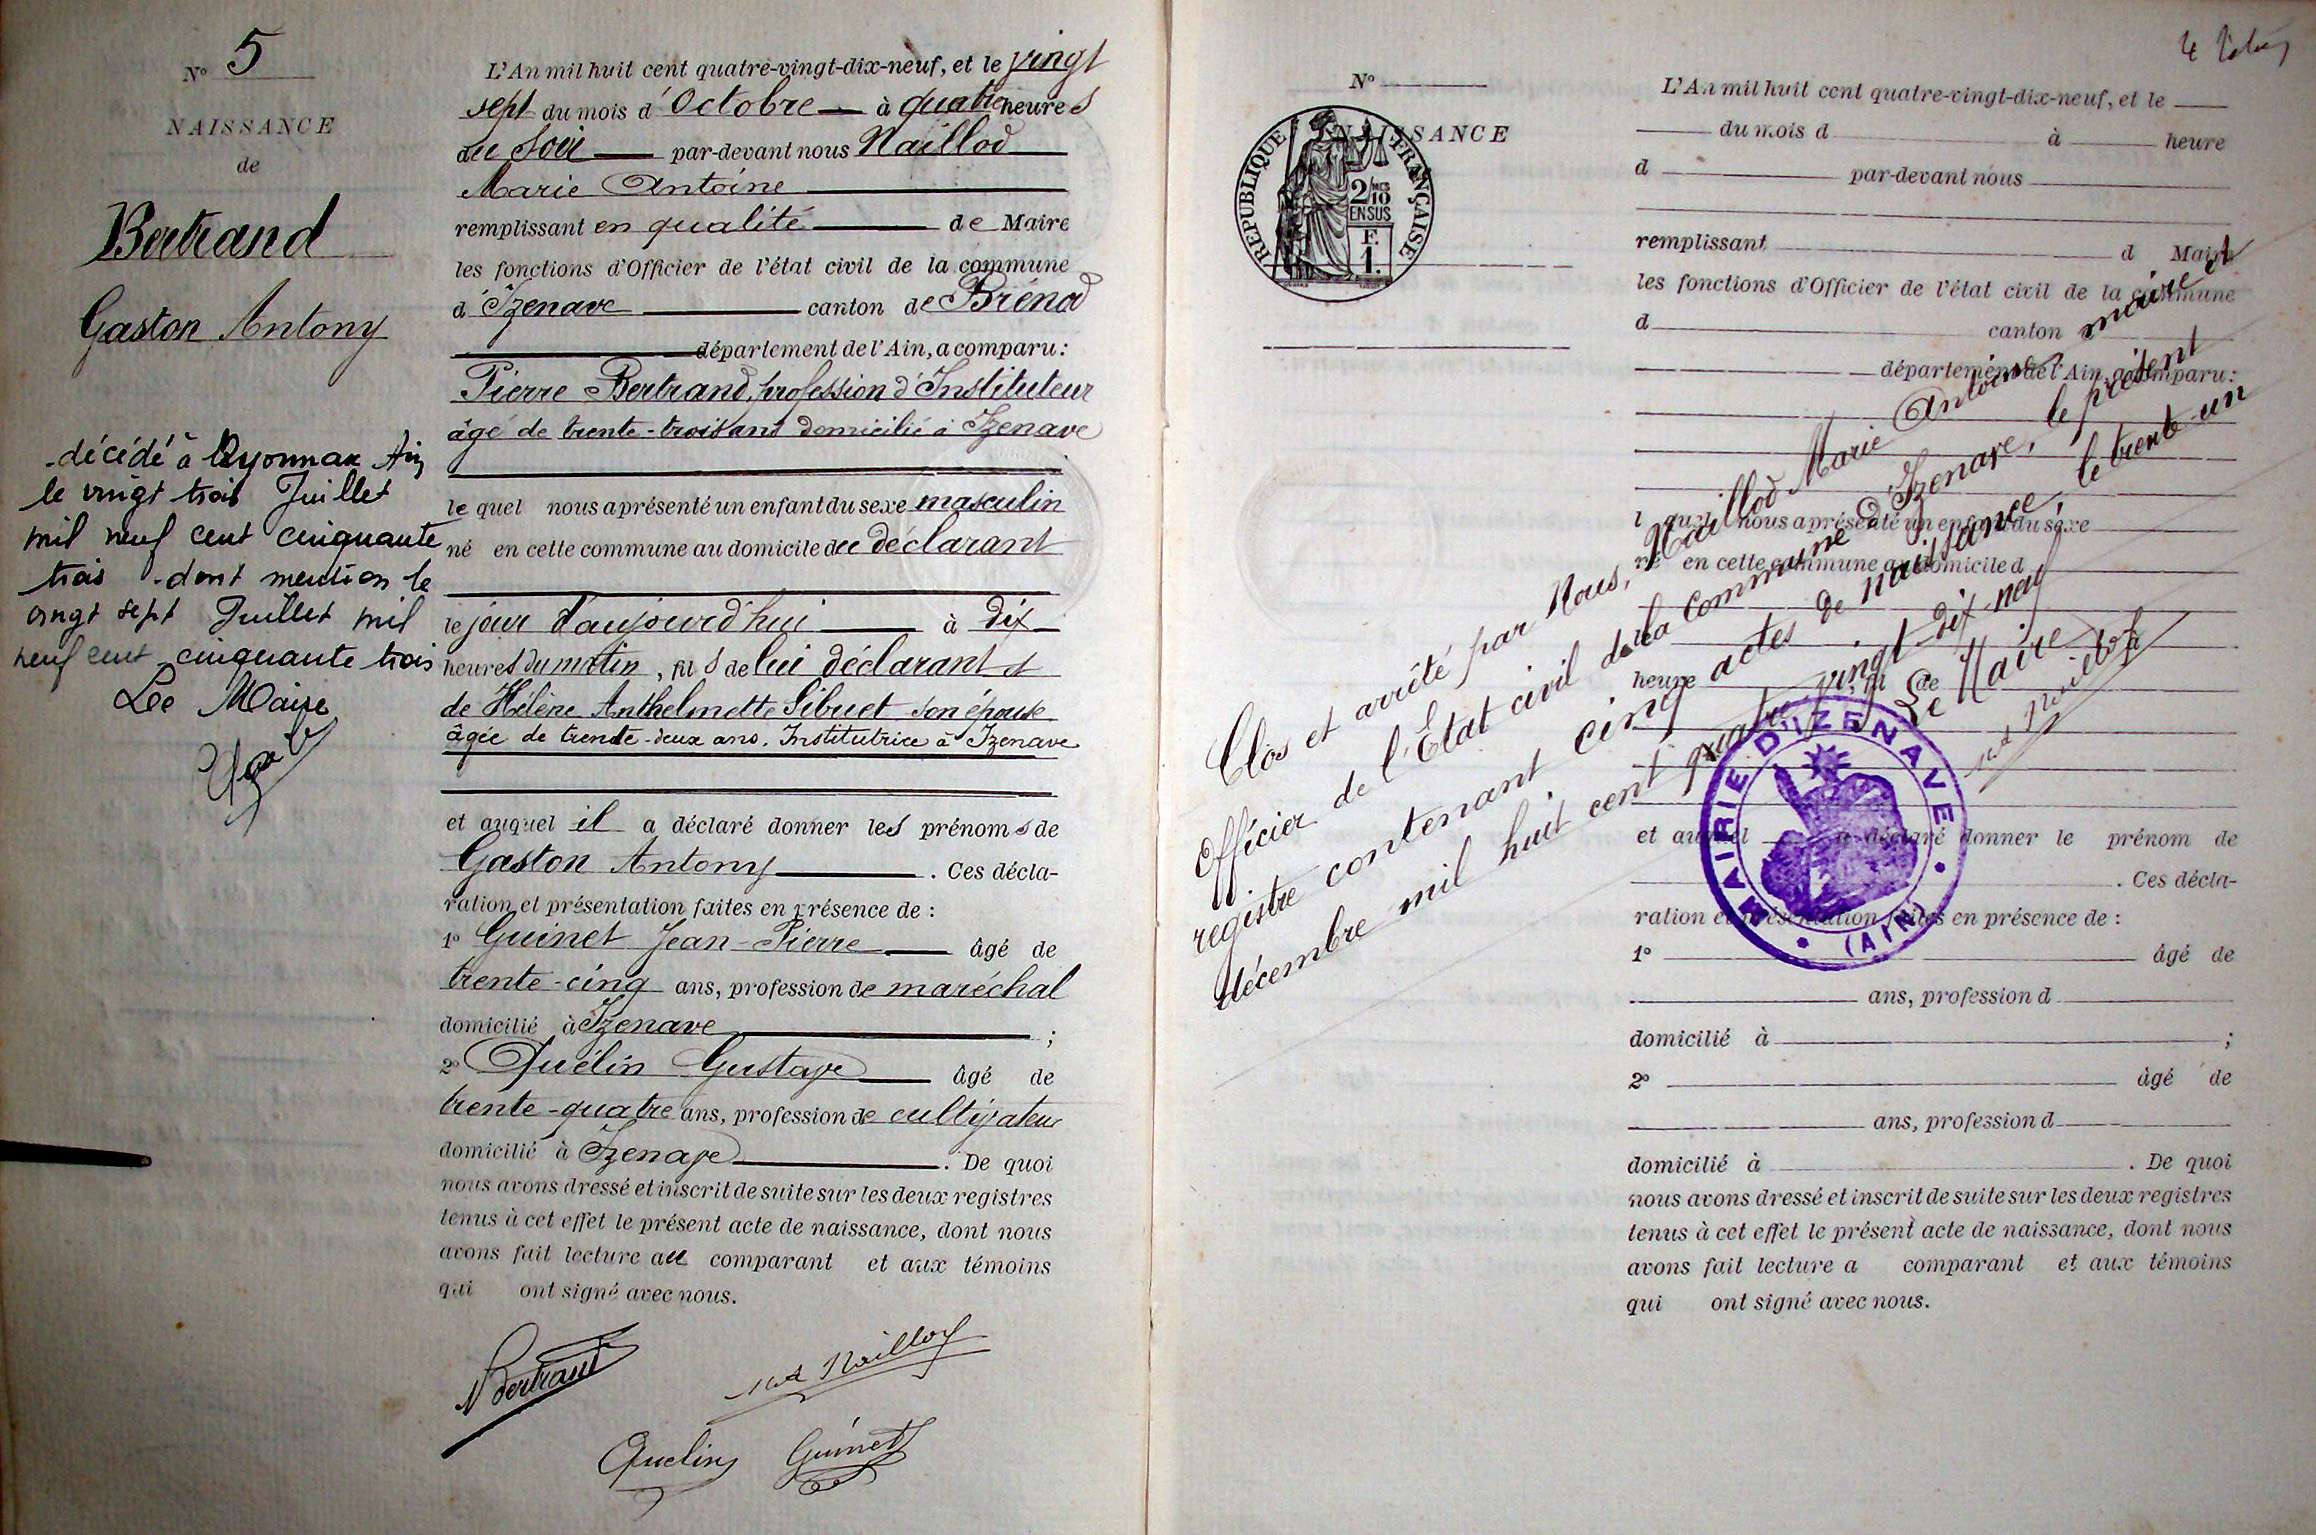 N° 5
NAISSANCE
de
Bertrand
Gaston Antony
décédé à Oyonnax Ain
le vingt trois Juillet
mil neuf cent cinquante
trois - dont mention le
vingt sept Juillet mil
neuf cent cinquante trois
Le Maire
L'An mil huit cent quatre-vingt-dix-neuf, et le vingt
sept du mois d'Octobre à quatre heures
du soir par-devant nous Naillod
Marie Antoine
remplissant en qualité de Maire
les fonctions d'Officier de l'état civil de la commune
d'Izenave canton de Brénod
département de l'Ain, a comparu :
Pierre Bertrand, profession d'Instituteur
âgé de trente-trois ans domicilié à Izenave
lequel nous a présenté un enfant du sexe masculin
né en cette commune au domicile du déclarant
le jour d'aujourd'hui à dix
heures du matin, fils de lui déclarant et
de Hélène Anthelmette Sibuet son épouse
âgée de trente-deux ans. Institutrice à Izenave
et auquel il a déclaré donner les prénoms de
Gaston Antony . Ces décla-
ration et présentation faites en présence de :
1° Guinet Jean-Pierre âgé de
trente-cinq ans, profession de maréchal
domicilié à Izenave ;
2° Quélin Gustave âgé de
trente-quatre ans, profession de cultivateur
domicilié à Izenave . De quoi
nous avons dressé et inscrit de suite sur les deux registres
tenus à cet effet le présent acte de naissance, dont nous
avons fait lecture au comparant et aux témoins
qui ont signé avec nous.
Bertrand
Naillod
Quelin Guinet
N°
NAISSANCE
REPUBLIQUE FRANÇAISE
2/10 MES
EN SUS
F.
1.
L'An mil huit cent quatre-vingt-dix-neuf, et le
du mois d à heure
d par-devant nous
remplissant d Maire
les fonctions d'Officier de l'état civil de la commune
d canton
département de l'Ain, a comparu :
l quel nous a présenté un enfant du sexe
né en cette commune au domicile d
heure , fil de
et auquel a déclaré donner le prénom de
. Ces décla-
ration et présentation faites en présence de :
1° âgé de
ans, profession d
domicilié à ;
2° âgé de
ans, profession d
domicilié à . De quoi
nous avons dressé et inscrit de suite sur les deux registres
tenus à cet effet le présent acte de naissance, dont nous
avons fait lecture a comparant et aux témoins
qui ont signé avec nous.
Clos et arrêté par Nous, Naillod Marie Antoine maire et
Officier de l'État civil de la commune d'Izenave, le présent
registre contenant cinq actes de naissance, le trente-un
décembre mil huit cent quatre vingt dix neuf
Le Maire
Naillod
MAIRIE D'IZENAVE
(AIN)